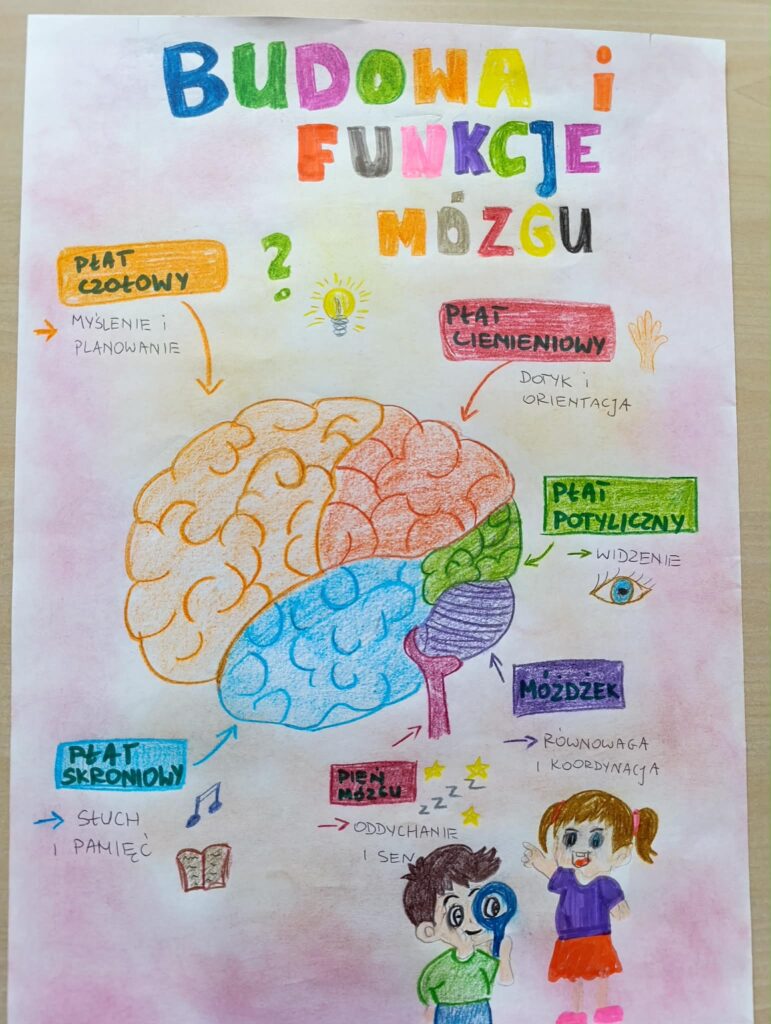 BUDOWA i
FUNKCJE
MÓZGU
PŁAT
CZOŁOWY
MYŚLENIE i
PLANOWANIE
?
PŁAT
CIEMIENIOWY
DOTYK i
ORIENTACJA
PŁAT
POTYLICZNY
WIDZENIE
MÓŻDŻEK
RÓWNOWAGA
i KOORDYNACJA
PŁAT
SKRONIOWY
SŁUCH
i PAMIĘĆ
PIEŃ
MÓZGU
zzzzz
ODDYCHANIE
i SEN